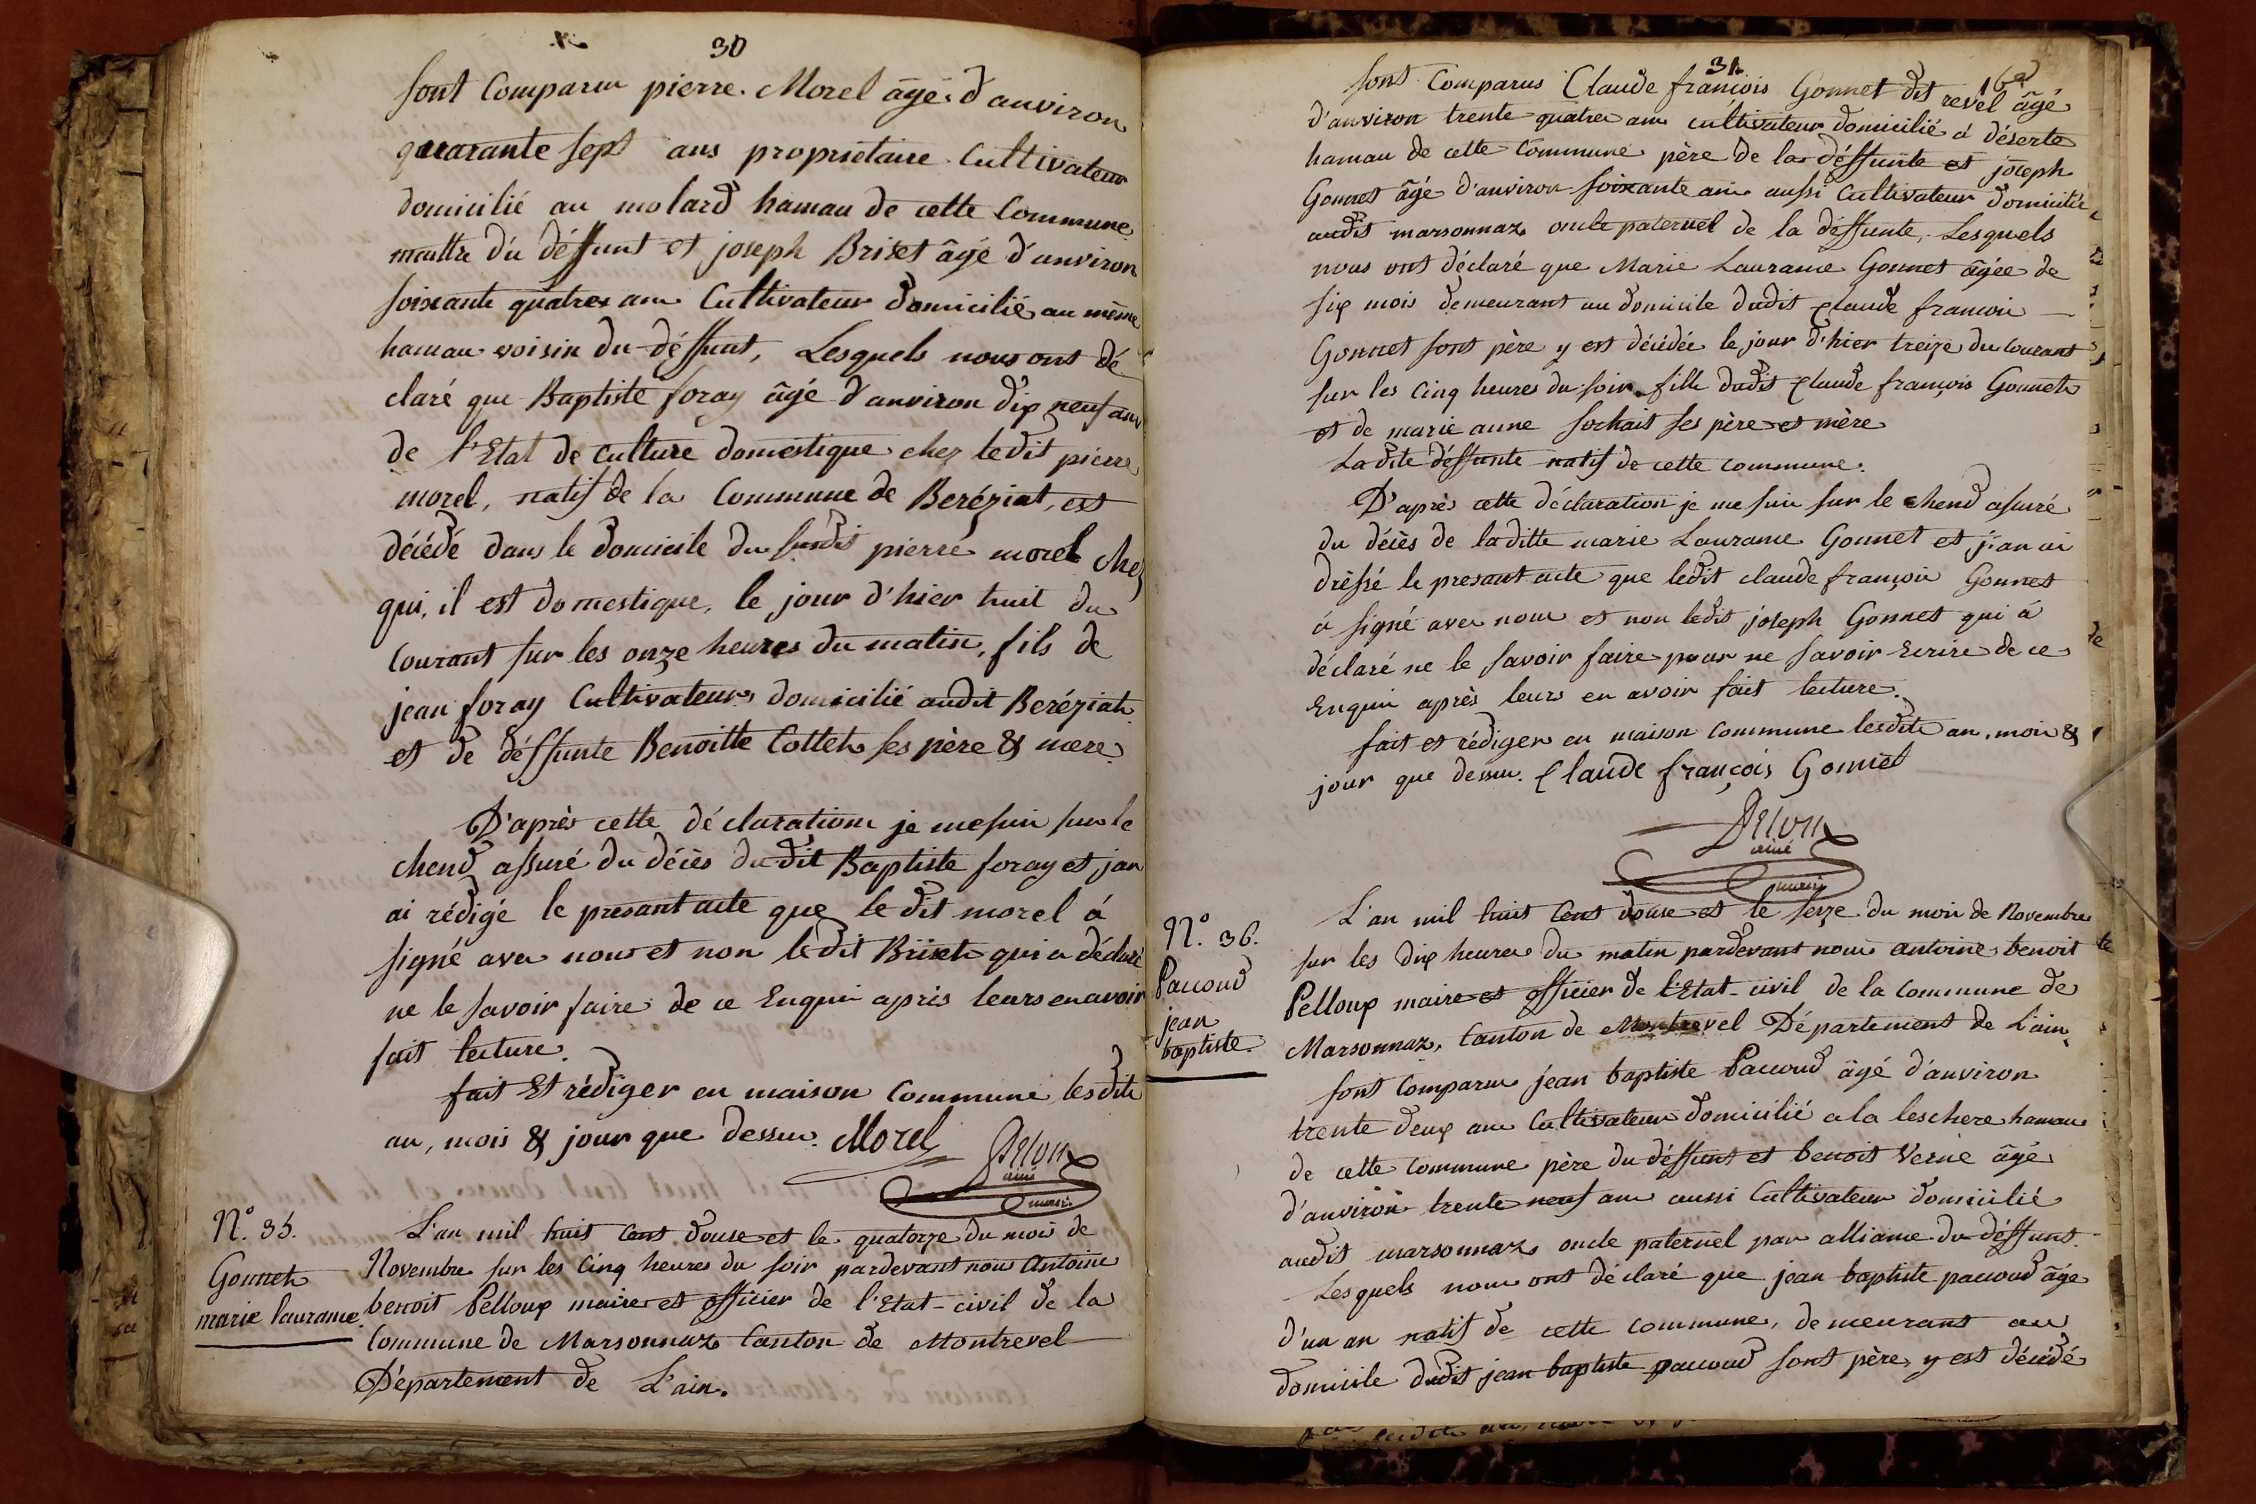 30
sont Comparus pierre. Morel âgé d'anviron
quarante sept ans propriétaire Cultivateur
domicilié au molard hamau de cette Commune
maitre du déffunt et joseph Brixet âgé d'anviron
soixante quatres ans Cultivateur domicilié au même
hamau voisin du déffunt, Lesquels nous ont dé
claré que Baptiste foray âgé d'anviron dix neuf ans
de l'Etat de culture domestique chez ledit pierre
morel, natif de la Commune de Beréziat, est
décédé dans le domicile du susdit pierre morel chez
qui, il est domestique, le jour d'hier huit du
Courant sur les onze heures du matin, fils de
jean foray Cultivateur domicilié audit Beréziat
et de déffunte Benoitte Cottet ses père & mere.
D'après cette déclaration je me suis sur le
chend assuré du décès du dit Baptiste foray et jan
ai rédigé le presant acte que le dit morel á
signé avec nous et non ledit Brixet qui a déclaré
ne le savoir faire de ce Enquis après leurs en avoir
fait lecture.
fait Et rédiger en maison Commune lesdits
an, mois & jour que dessus. Morel
Pelloux
ainé
maire
N.° 35.
Gonnet
marie laurance.
L'an mil huit Cent douse et le quatorze du mois de
Novembre sur les Cinq heures du soir pardevant nous Antoine
benoit Pelloux maire et officier de l'Etat-civil de la
Commune de Marsonnaz Canton de Montrevel
Département de L'ain.
31
16
sont Comparus Claude françois Gonnet dit revel âgé
d'anviron trente quatre ans cultivateur domicilié á déserte
hamau de cette Commune père de la déffunte et joseph
Gonnet âgé d'anviron soixante ans aussi Cultivateur domicilié
audit marsonnaz oncle paternel de la déffunte, Lesquels
nous ont déclaré que Marie Laurance Gonnet âgée de
six mois demeurant au domicile dudit Claude francois
Gonnet sont père y est décédée le jour d'hier treize du courant
sur les cinq heures du soir fille dudit Claude françois Gonnet
et de marie anne Sochait ses père et mère
Ladite déffunte natif de cette commune.
D'après cette déclaration je me suis sur le chend assuré
du décès de laditte marie Laurance Gonnet et j'an ai
drèssé le presant acte que ledit claude françois Gonnet
á signé avec nous et non ledit joseph Gonnet qui á
déclaré ne le savoir faire pour ne savoir Ecrire de ce
Enquis après leurs en avoir fait lecture.
fait et rédiger en maison commune lesdits an, mois &
jour que dessus. Claude françois Gonnet
Pelloux
ainé
maire
N.° 36.
Paccoud
jean
baptiste.
L'an mil huit Cent douse et le seize du mois de Novembre
sur les dix heures du matin pardevant nous antoine benoit
Pelloux maire et officier de l'Etat-civil de la Commune de
Marsonnaz, Canton de Montrevel Département de L'ain,
sont Comparus jean baptiste Paccoud âgé d'anviron
trente deux ans Cultivateur domicilié a la leschere hamau
de cette Commune père du déffunt et benoit Verne âgé
d'anviron trente neuf ans aussi Cultivateur domicilié
audit marsonnaz oncle paternel par alliance du déffunt.
Lesquels nous ont déclaré que jean baptiste paccoud âgé
d'un an natif de cette commune, demeurant au
domicile dudit jean baptiste paccoud sont père, y est décédé